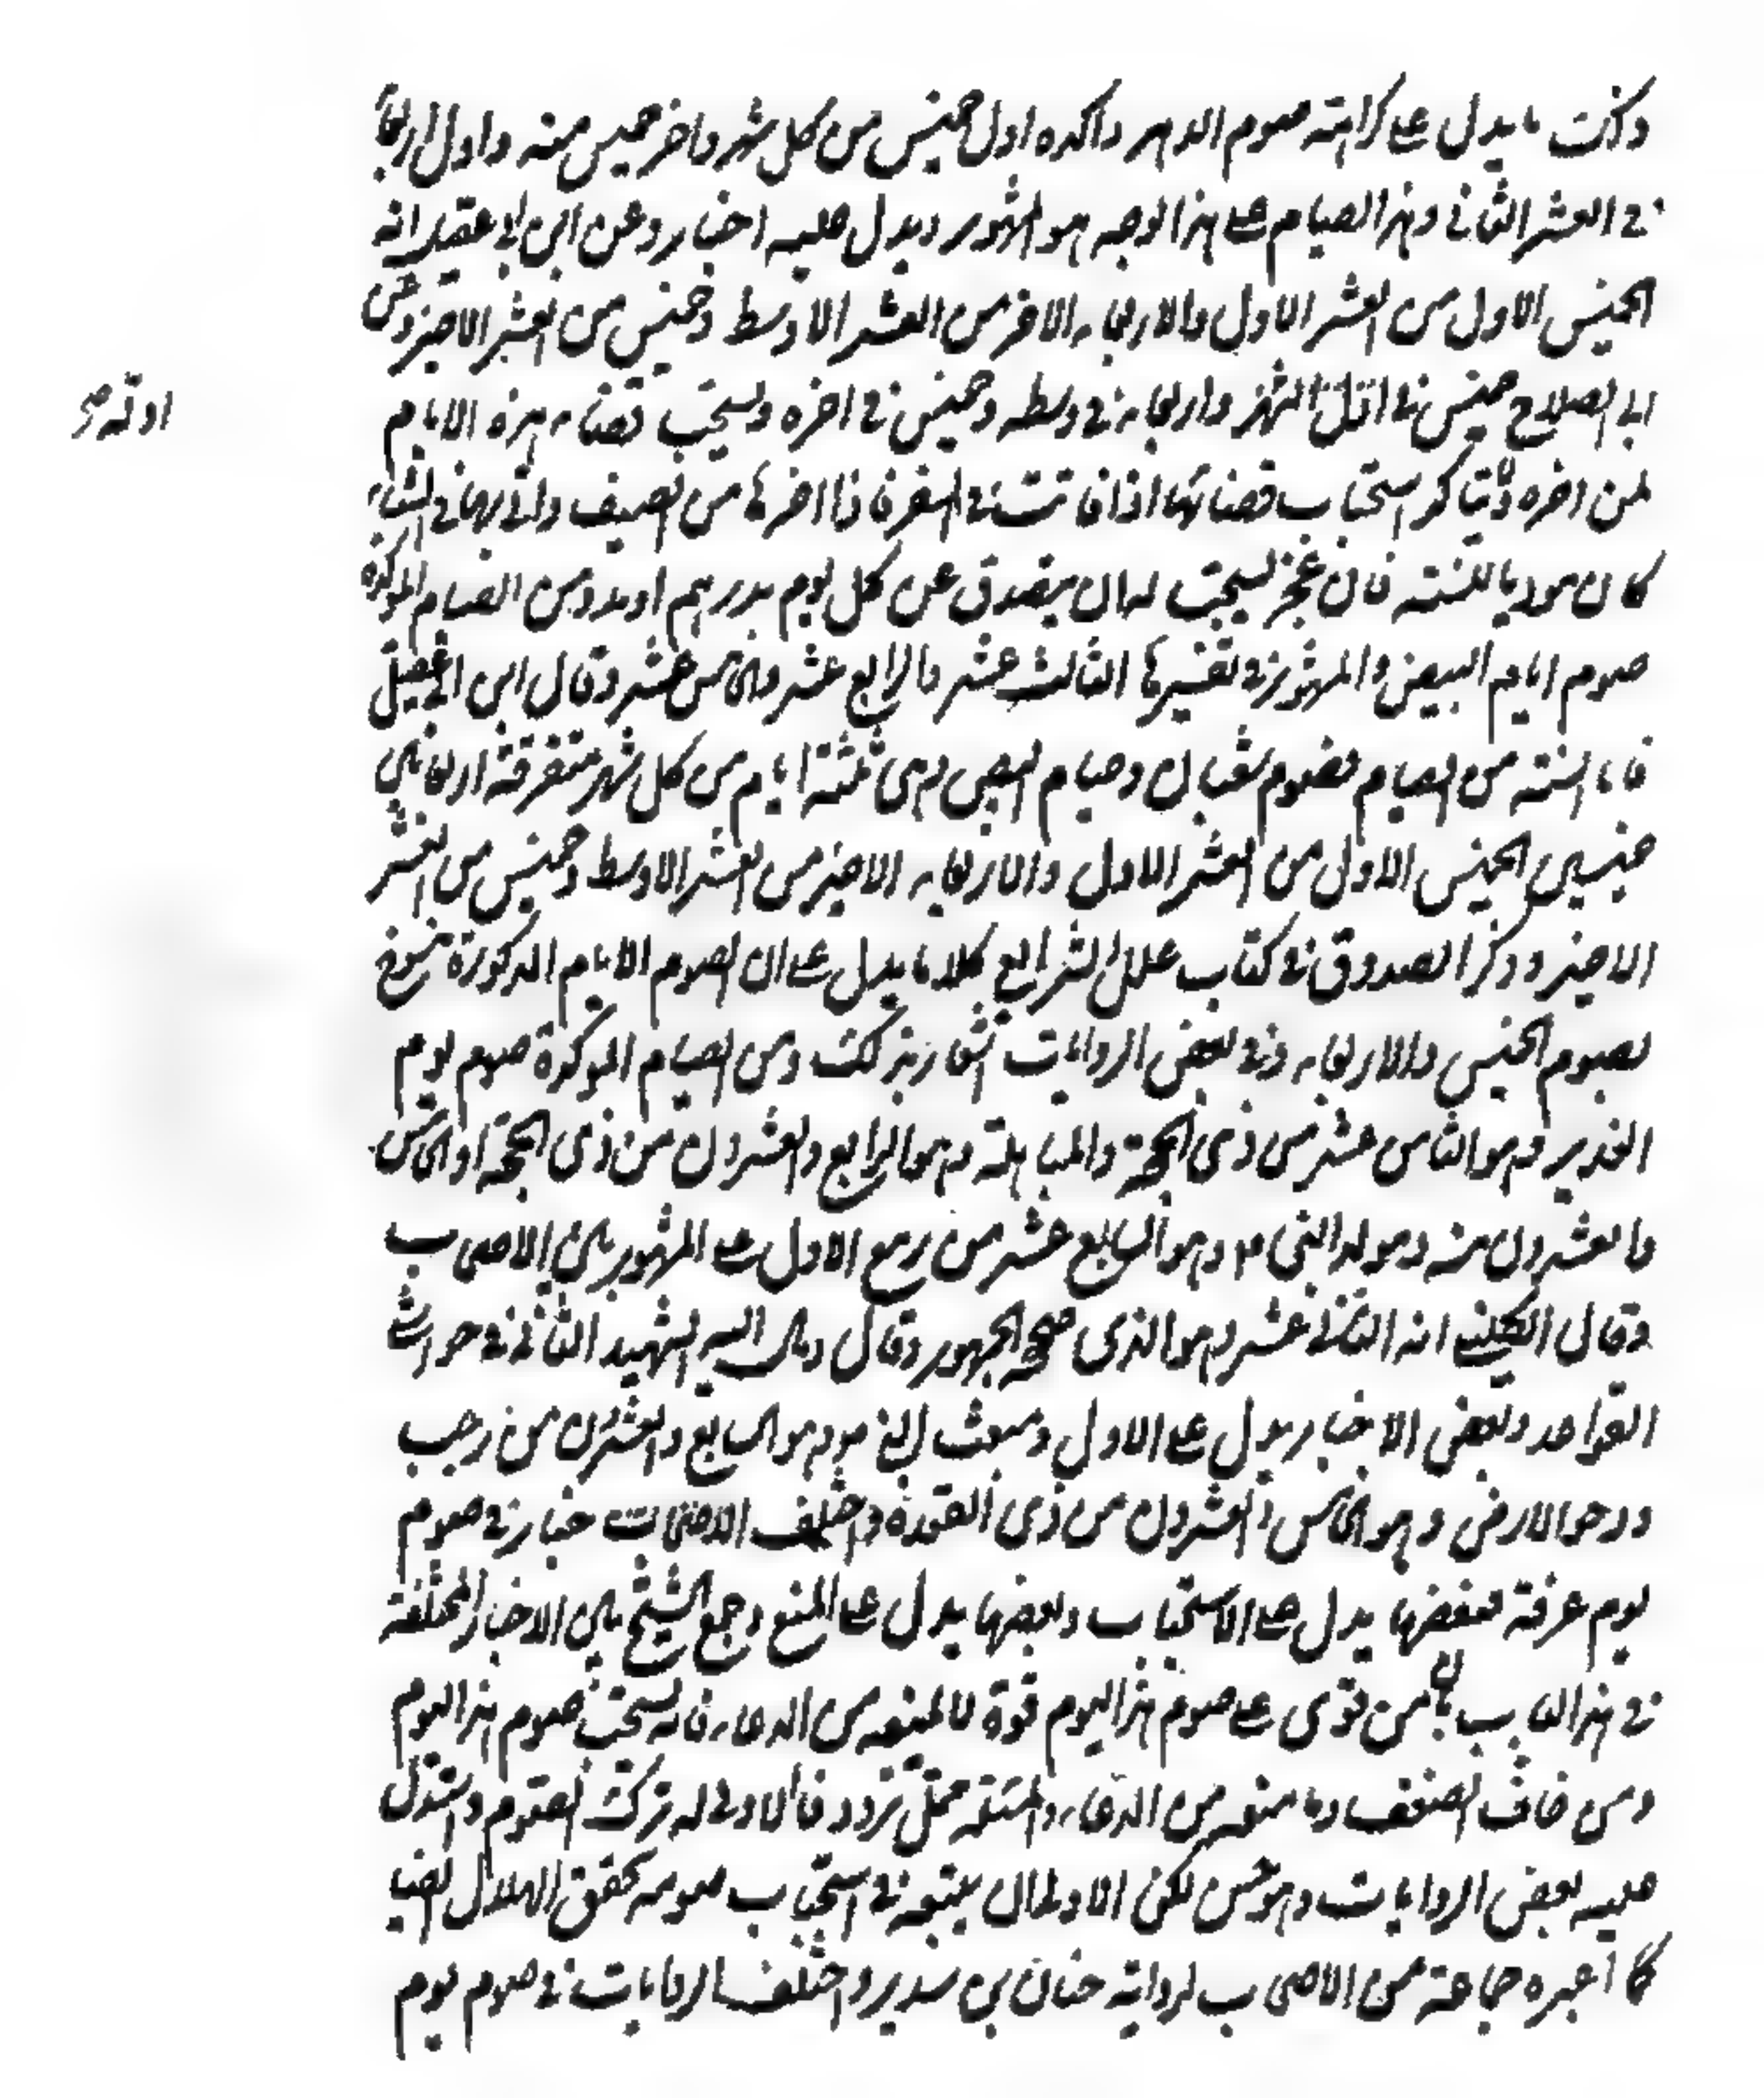 وكذلك ما يدل على كراهته صوم الدهر واكده اول خميس من كل شهر واخر خميس منه واول اربعاء
في العشر الثاني وهذا الصيام على هذا الوجه هو المشهور ويدل عليه اخبار وعن ابن ابي عقيل انه
الخميس الاول من العشر الاول والاربعاء الاخر من العشر الاوسط وخميس من العشر الاخير وعن
ابي الصلاح خميس في اول الشهر واربعاء في وسطه وخميس في اخره ويستحب قضاء هذه الايام
اوله صح
لمن اخره ويتأكد استحباب قضائها اذا فاتت في السفر فاذا اخرها من الصيف واتى بها في الشتاء
كان موديا للسنة فان عجز يستحب له ان يتصدق عن كل يوم بدرهم او مد ومن الصيام الموكدة
صوم ايام البيض والمشهور في تفسيرها الثالث عشر والرابع عشر والخامس عشر وقال ابن ابي عقيل
فاما السنة من الصيام فصوم شعبان وصيام البيض وهي ثلثة ايام من كل شهر متفرقة اربعا بين
خميسين الخميس الاول من العشر الاول والاربعاء الاخير من العشر الاوسط وخميس من العشر
الاخير وذكر الصدوق في كتاب علل الشرايع كلاما يدل على ان الصوم الايام المذكورة منسوخ
بصوم الخميس والاربعاء وفي بعض الروايات اشعار بذلك ومن الصيام الموكدة صوم يوم
الغدير وهو الثامن عشر من ذي الحجة والمباهلة وهو الرابع والعشرون من ذي الحجة او الخامس
والعشرون منه ومولد النبي ص وهو السابع عشر من ربيع الاول على المشهور بين الاصحاب
وقال الكليني انه الثاني عشر وهو الذي صححه الجمهور وقال ومال اليه الشهيد الثاني في حواشي
القواعد وبعض الاخبار يدل على الاول ومبعث النبي ص وهو السابع والعشرون من رجب
ودحو الارض وهو الخامس والعشرون من ذي القعدة واختلف الاخبار في صوم
يوم عرفة فبعضها يدل على الاستحباب وبعضها يدل على المنع وجمع الشيخ بين الاخبار المختلفة
في هذا الباب بان من قوى على صوم هذا اليوم قوة لا يمنعه من الدعاء فانه يستحب صوم هذا اليوم
ومن خاف الضعف وما منعه من الدعاء والمسئلة محل تردد فالاولى له ترك الصوم واستدل
عليه بعض الروايات وهو حسن لكن الاولى ان يعتبر في استحباب صومه تحقق الهلال ايضا
كما اعتبره جماعة من الاصحاب لرواية حنان بن سدير واختلف الروايات في صوم يوم